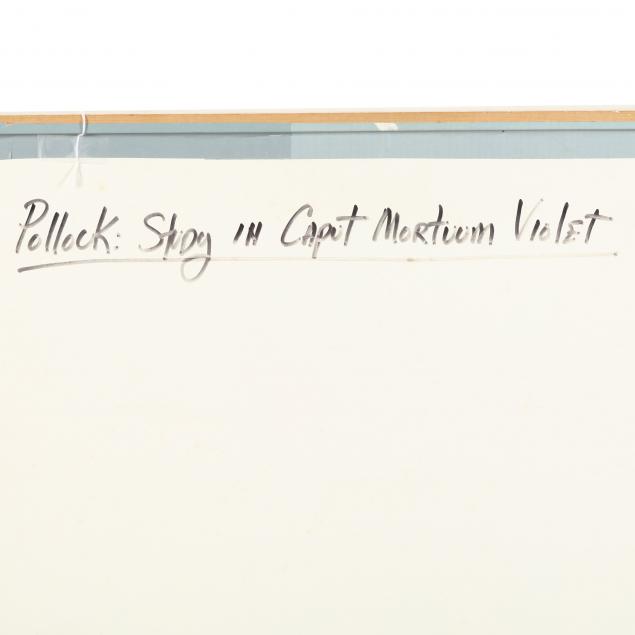 Pollock: Study in Caput Mortuum Violet